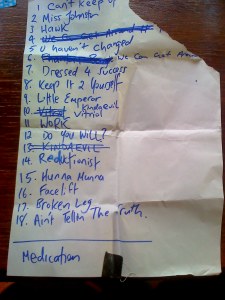 1 Can't keep up
2 Miss Johnston
3 Hawk
4 We Can Get Around it
5 U haven't changed
6. We Can Get Around
7. Dressed 4 success
8. Keep it 2 yourself
9. Little Emperor
10. Vitriol Kindaevil
11 WORK
12 DO YOU WILL?
13 KINDAEVIL
14. Reductionist
15. Hunna Munna
16. Facelift
17. Broken Leg
18. Ain't Tellin The Truth.
Medication